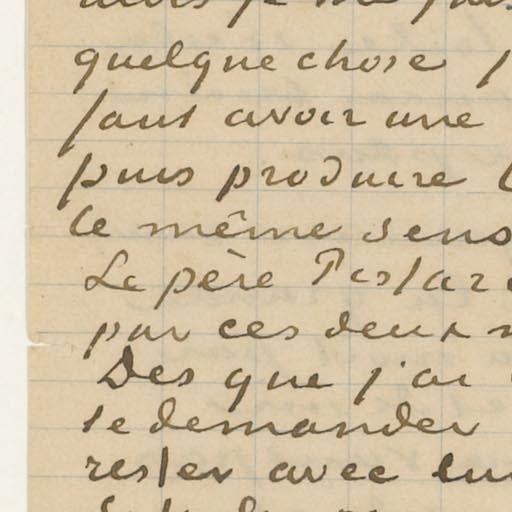 quelque chose
faut avoir une
puis produire
le même sens
Le père
par ces deux
Des que j'ai
te demander
rester avec lui